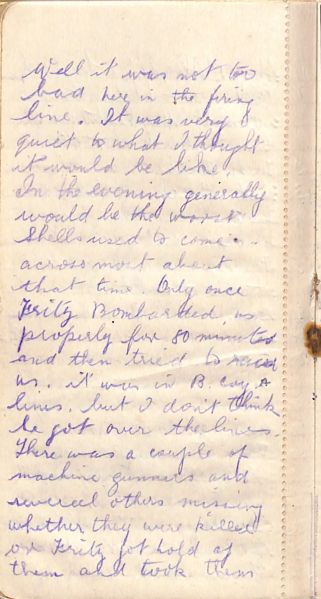 Well it was not too
bad here in the firing
line. It was very
quiet to what I thought
it would be like.
In the evening generally
would be the worst
Shells used to come
across most about
that time. Only once
Fritz Bombarded us
properly for 80 minutes
and then tried to raid
us. it was in B. Coy
lines. but I don't think
he got over the lines.
There was a couple of
machine gunners and
several others missing
whether they were killed
or Fritz got hold of
them and took them